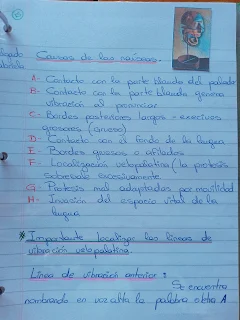 Causas de las náuseas:
A- Contacto con la parte blanda del paladar
B- Contacto con la parte blanda genera
vibración al pronunciar
C- Bordes posteriores largos - excesivos
grosores (grueso)
D- Contacto con el fondo de la lengua
E- Bordes gruesos o afilados
F- Localización velopalatina (la protesis
sobresale excesivamente
G- Protesis mal adaptadas por movilidad
H- Invasión del espacio vital de la
lengua
* Importante localizar las lineas de
vibración velopalatina.
Línea de vibración anterior:
Se encuentra
nombrando en voz alta la palabra